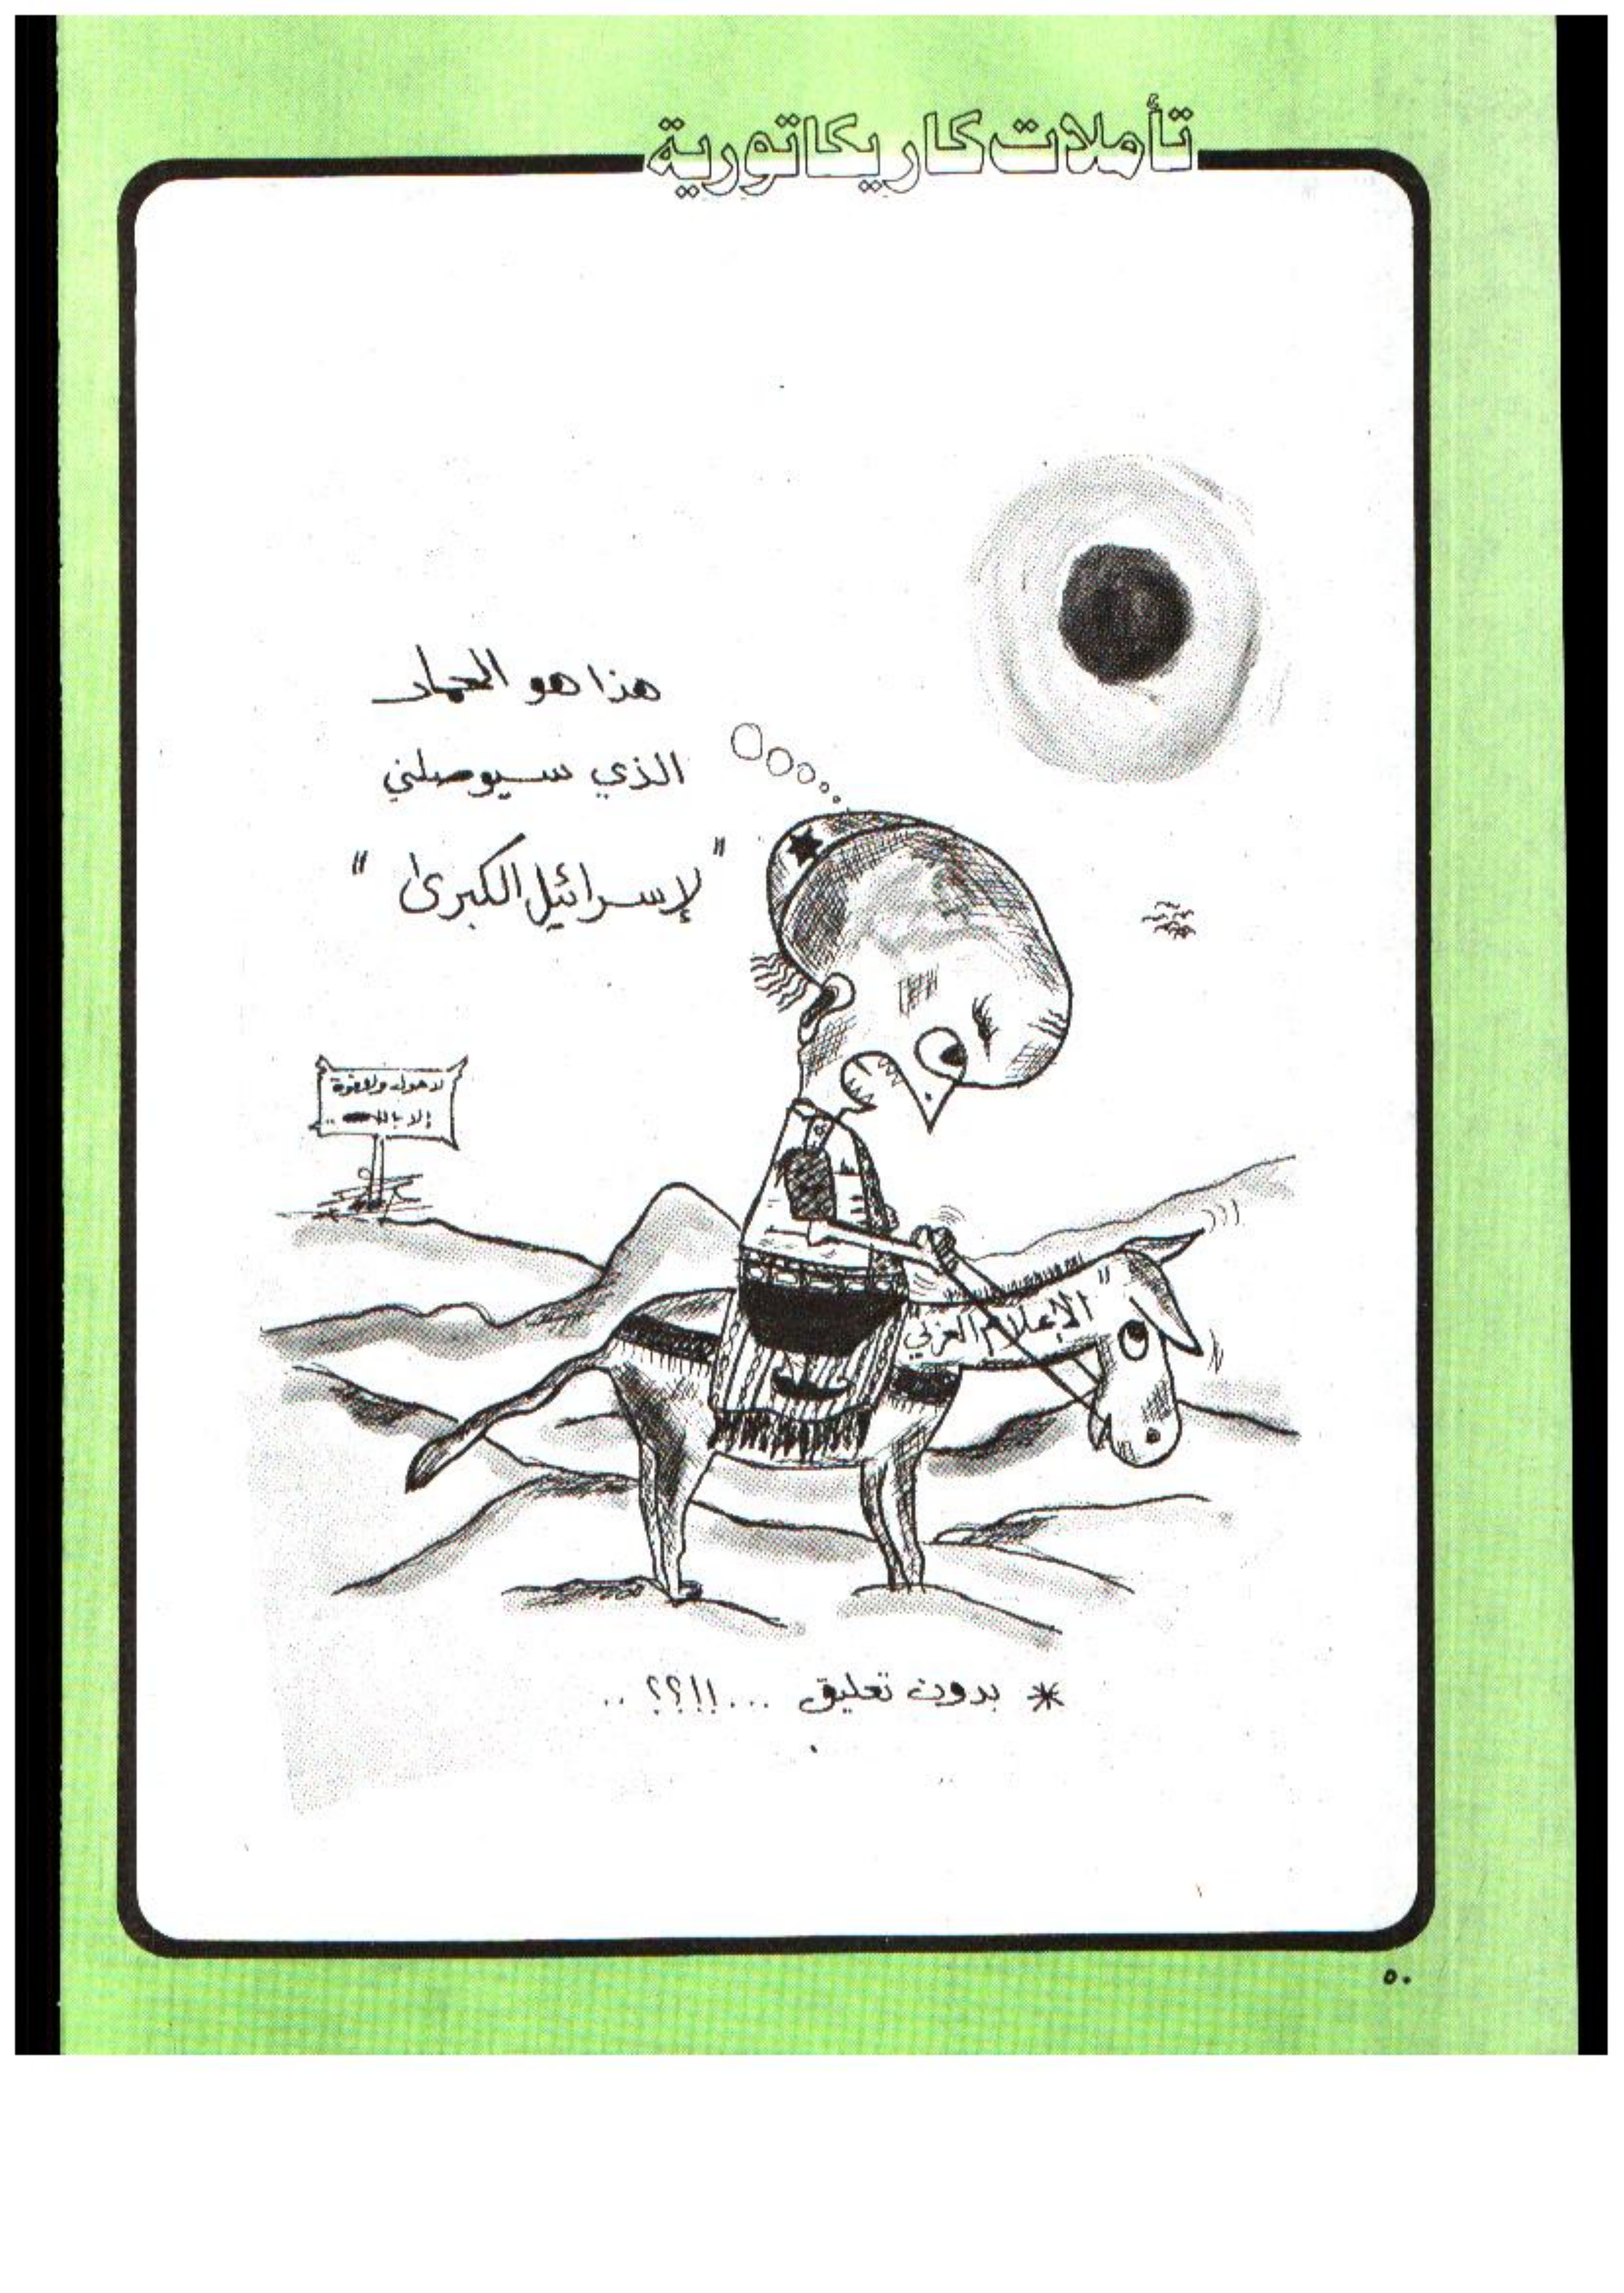 تأملات كاريكاتورية
هذا هو الحمار
الذي سيوصلني
"لإسرائيل الكبرى"
لا حول ولا قوة
إلا بالله ..
"الإعلام العربي
* بدون تعليق ...!!؟؟ ..
٥٠